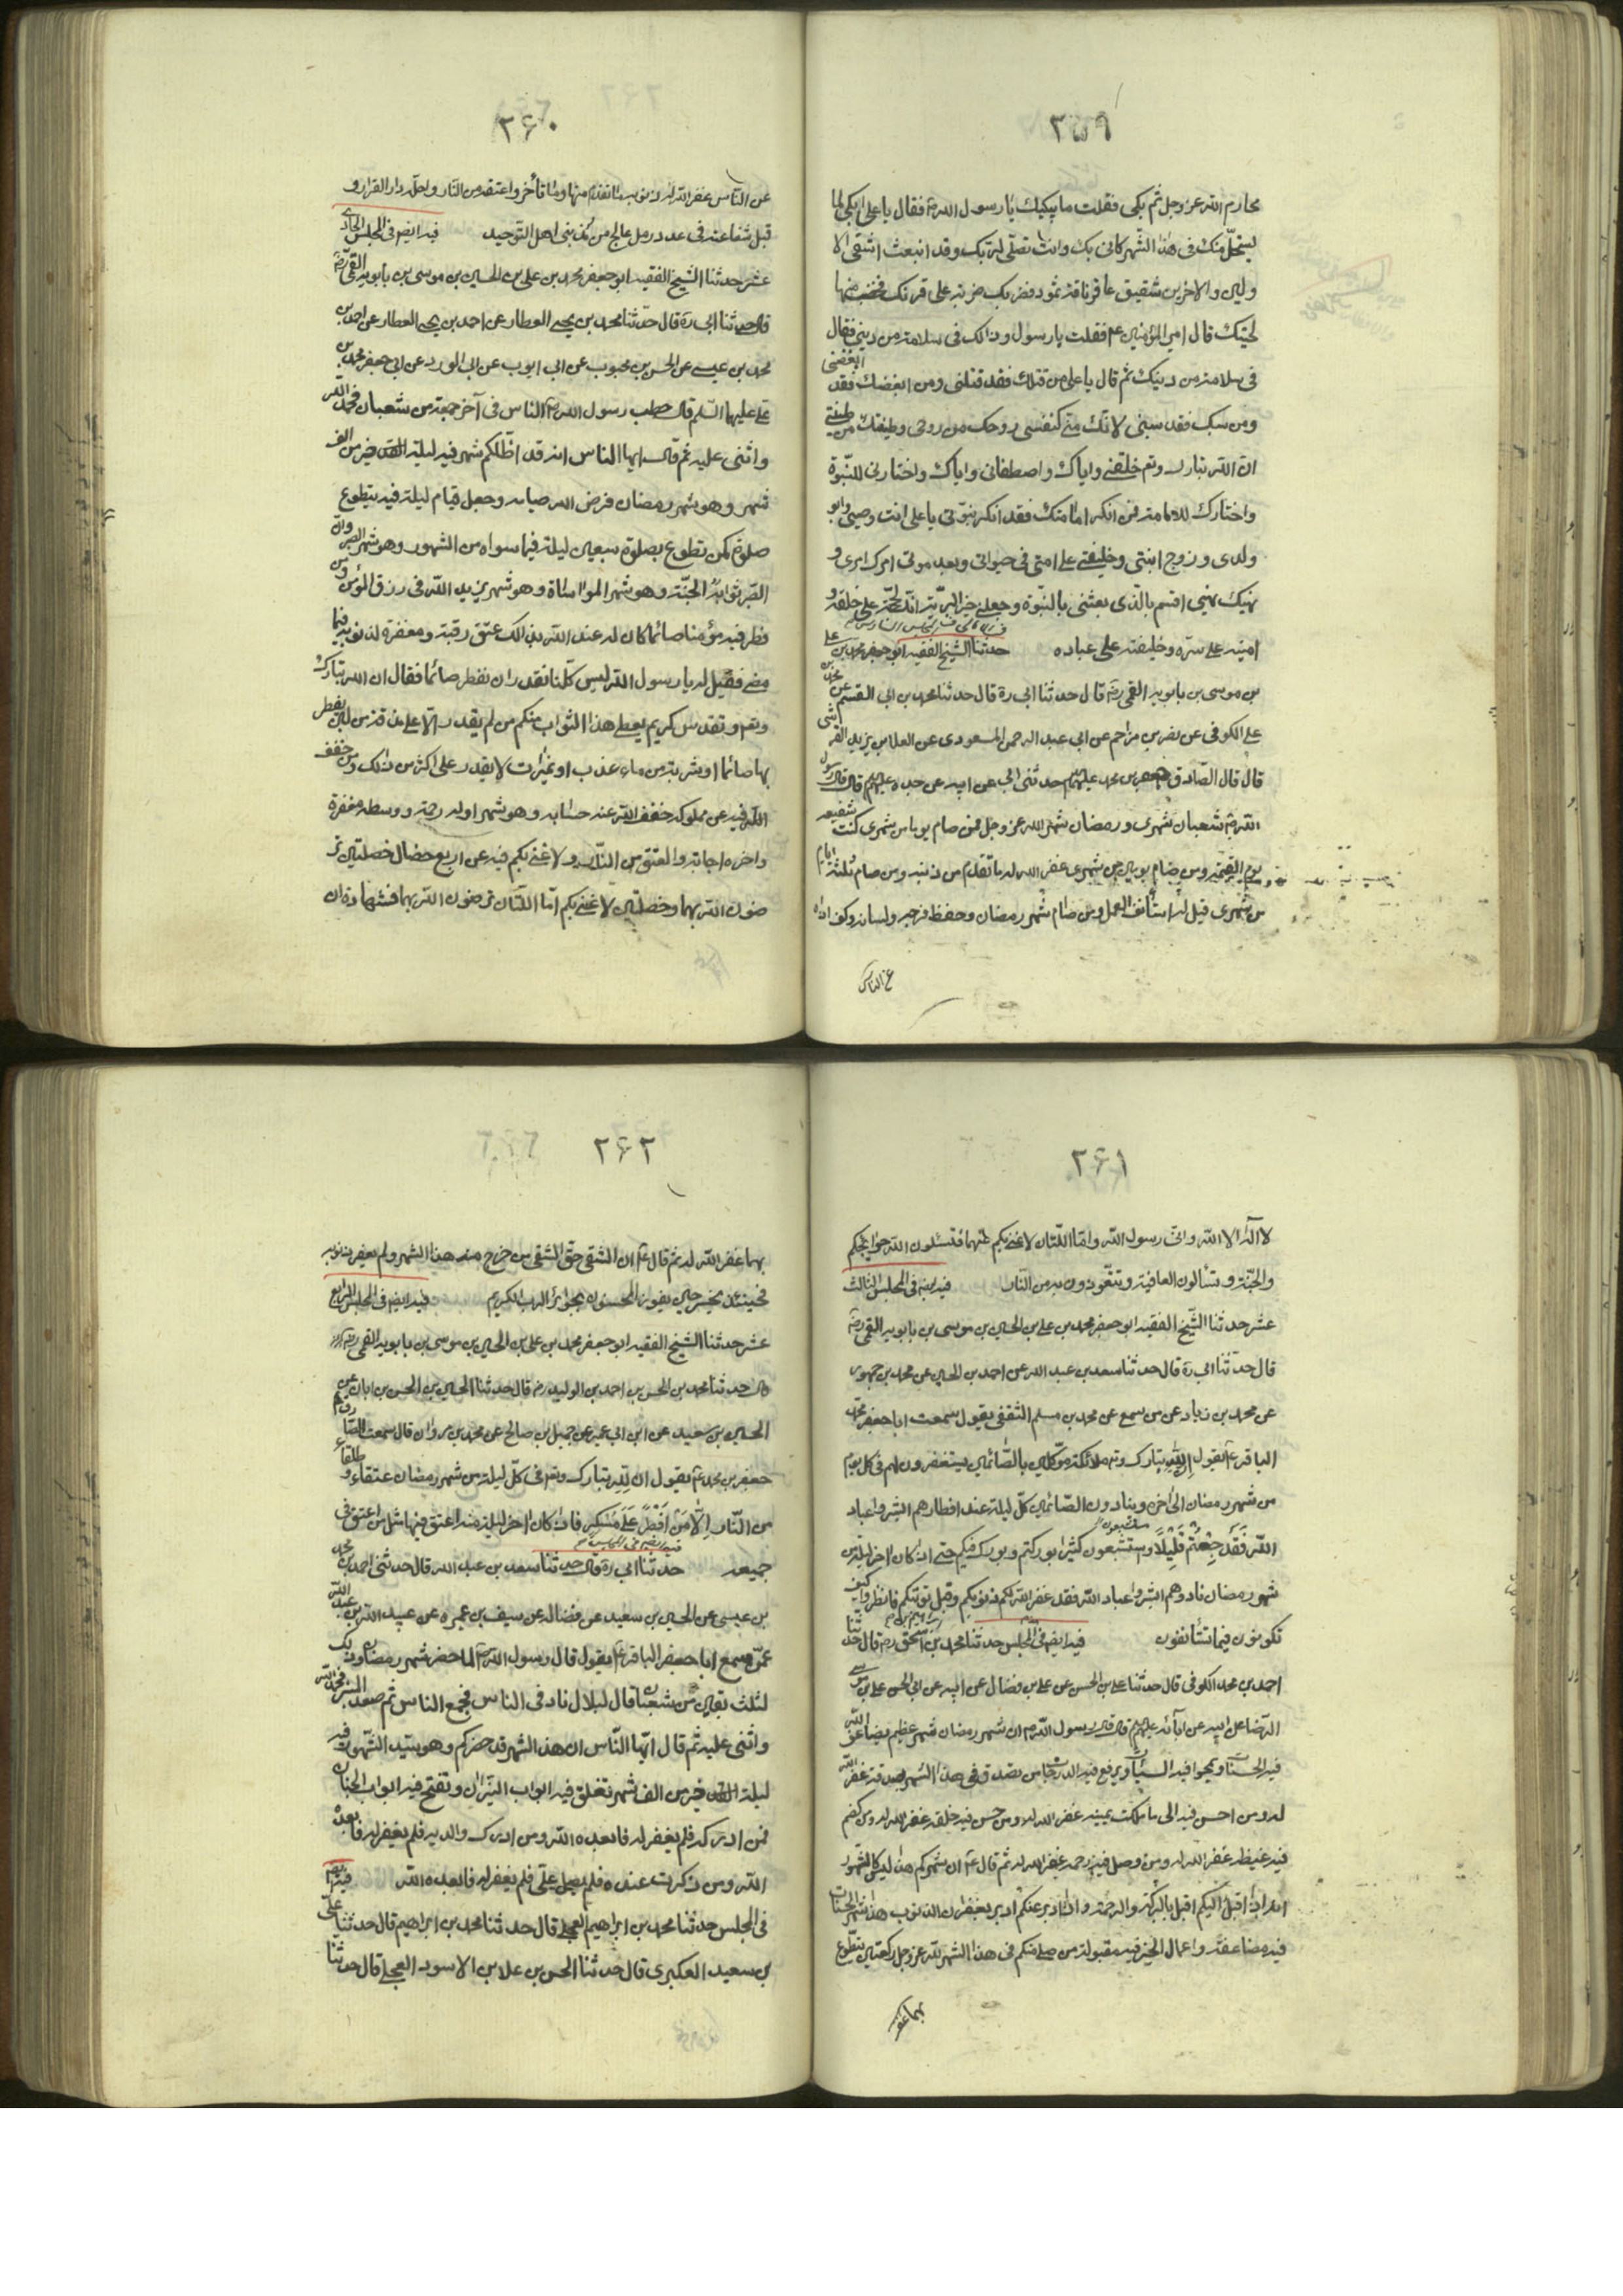 ۲۵۹
محارم الله عز وجل ثم بكى فقلت ما يبكيك يا رسول الله ص فقال يا على ابكى لما
يستحلّ منك فى هذا الشهر كانى بك وانت تصلّى لربك وقد انبعث اشقى الا
ولين والاخرين شقيق عاقر ناقة ثمود فضربك ضربة على قرنك فخضب منها
لحيتك قال امير المؤمنين ع فقلت يا رسول وذلك فى سلامة من دينى فقال
فى سلامة من دينك ثم قال يا على من قتلك فقد قتلنى ومن ابغضك فقد ابغضنى
ومن سبك فقد سبنى لانك منى كنفسى روحك من روحى وطينتك من طينتى
ان الله تبارك وتع خلقنى واياك واصطفانى واياك واختارنى للنبّوة
واختارك للامامة فمن انكر امامتك فقد انكر نبوتى يا على انت وصيى وابو
ولدى وزوج ابنتى وخليفتى على امتى فى حيوتى وبعد موتى امرك امرى و
نهيك نهيى اقسم بالذى بعثنى بالنبوة وجعلنى خير البريّة انك لحجّة على خلقه و
امينه على سرّه وخليفته على عباده حدثنا الشيخ الفقيه ابو جعفر محمد بن على
بن موسى بن بابويه القمى ره قال حدثنا ابى ره قال حدثنا محمد بن ابى القسم عن محمد بن
على الكوفى عن نصر بن مزاحم عن ابى عبد الرحمن المسعودى عن العلا بن يزيد القرشى
قال قال الصادق جعفر بن محمد عليهم حدثنى ابى عن ابيه عن جده عليهم قال قال رسول
الله ص شعبان شهرى ورمضان شهر الله عز وجل فمن صام يوما من شهرى كنت شفيعه
يوم القيمة ومن صام يومين من شهرى غفر الله له ما تقدم من ذنبه ومن صام ثلثة ايام
من شهرى قيل له استأنف العمل ومن صام شهر رمضان وحفظ فرجه ولسانه وكف اذاه
عن الناس
۲۶۰
عن الناس غفر الله له ذنوبه ما تقدم منها وما تأخر واعتقه من النار واحلّه دار القرار و
قبل شفاعته فى عدد رمل عالج من مذنبى اهل التوحيد فيه ايضا فى المجلس الحادى
عشر حدثنا الشيخ الفقيه ابو جعفر محمد بن على بن الحسين بن موسى بن بابويه القمى ره
قال حدثنا ابى ره قال حدثنا محمد بن يحيى العطار عن احمد بن يحيى العطار عن احمد بن
محمد بن عيسى عن الحسن بن محبوب عن ابى ايوب عن ابى الورد عن ابى جعفر محمد بن
على عليهما السلم قال خطب رسول الله ص الناس فى آخر جمعة من شعبان فحمد الله
واثنى عليه ثم قال ايها الناس انه قد اظلكم شهر فيه ليلة القدر خير من الف
شهر وهو شهر رمضان فرض الله صيامه وجعل قيام ليلة فيه بتطوع
صلوة كمن تطوع بصلوة سبعين ليلة فيما سواه من الشهور وهو شهر الصبر وان
الصبر ثوابه الجنّة وهو شهر المواساة وهو شهر يزيد الله فى رزق المؤمن ومن
فطر فيه مؤمنا صائما كان له عند الله بذلك عتق رقبة ومغفرة لذنوبه فيما
مضى فقيل له يا رسول الله ليس كلّنا نقدر ان نفطر صائما فقال ان الله تبارك
وتع وتقدس كريم يعطى هذا الثواب منكم من لم يقدر الا على مذقة من لبن يفطر
بها صائما او شربة من ماء عذب او تميرات لا يقدر على اكثر من ذلك ومن خفف
فيه عن مملوكه خفف الله عنه حسابه وهو شهر اوله رحمة ووسطه مغفرة
واخره اجابة والعتق من النار ولا غنى بكم فيه عن اربع خصال خصلتين تر
ضون الله بهما وخصلتين لا غنى بكم امّا اللتان ترضون الله بهما فشهادة ان
۲۶۱
لا اله الا الله وانى رسول الله وامّا اللتان لا غنى بكم عنهما فتسئلون الله حوايجكم
والجنّة وتسألون العافية وتتعوذون به من النار فيه ايضا فى المجلس الثالث
عشر حدثنا الشيخ الفقيه ابو جعفر محمد بن على بن الحسين بن موسى بن بابويه القمى ره
قال حدثنا ابى ره قال حدثنا سعد بن عبد الله عن احمد بن الحسين عن محمد بن جمهور
عن محمد بن زياد عن من سمع عن محمد بن مسلم الثقفى يقول سمعت ابا جعفر محمد
الباقر ع يقول ان لله تبارك وتع ملائكة موكلين بالصائمين يستغفرون لهم فى كل يوم
من شهر رمضان الى اخره وينادون الصائمين كل ليلة عند افطارهم ابشروا عباد
الله فقد جعتم قليلا وستشبعون كثيرا بوركتم وبورك فيكم حتى اذا كان اخر ليلة من
شهر رمضان نادوهم ابشروا عباد الله فقد غفر الله لكم ذنوبكم وقبل توبتكم فانظروا كيف
تكونون فيما تستأنفون فيه ايضا فى المجلس حدثنا محمد بن اسحق ره قال حدثنا
احمد بن محمد الكوفى قال حدثنا على بن الحسن عن على بن فضال عن ابيه عن ابى الحسن على بن موسى
الرضا عن ابيه عن آبائه عليهم قال قال رسول الله ص ان شهر رمضان شهر عظيم يضاعف الله
فيه الحسنات ويمحو فيه السيئات ويرفع فيه الدرجات من تصدق فى هذا الشهر بصدقة غفر الله
له ومن احسن فيه الى ما ملكت يمينه غفر الله له ومن حسن فيه خلقه غفر الله له ومن كظم
فيه غيظه غفر الله له ومن وصل فيه رحمه غفر الله له ثم قال ع ان شهركم هذا ليس كالشهور
انه اذا اقبل اليكم اقبل بالبركة والرحمة واذا ادبر عنكم ادبر بغفران الذنوب هذا شهر الحسنات
فيه مضاعفة واعمال الخير فيه مقبولة من صلى منكم فى هذا الشهر لله عز وجل ركعتين يتطوع
بهما غفر
۲۶۲
بهما غفر الله له ثم قال ع ان الشقى حق الشقى من خرج منه هذا الشهر ولم يغفر ذنوبه
فحينئذ يخسر حين يفوز المحسنون بجوائز الرب الكريم فيه ايضا فى المجلس الرابع
عشر حدثنا الشيخ الفقيه ابو جعفر محمد بن على بن الحسين بن موسى بن بابويه القمى
قال حدثنا محمد بن الحسن بن احمد بن الوليد ره قال حدثنا الحسين بن الحسن بن ابان عن
الحسين بن سعيد عن ابن ابى عمير عن جميل بن صالح عن محمد بن مروان قال سمعت الصادق
جعفر بن محمد ع يقول ان لله تبارك وتع فى كل ليلة من شهر رمضان عتقاء وطلقاء
من النار الا من افطر على مسكر فاذا كان اخر ليلة منه اعتق فيها مثل من اعتق فى
جميعه حدثنا ابى ره قال حدثنا سعد بن عبد الله قال حدثنى احمد بن محمد
بن عيسى عن الحسين بن سعيد عن فضالة عن سيف بن عميرة عن عبيد الله بن عبد الله
عمّن سمع ابا جعفر الباقر ع يقول قال رسول الله ص لما حضر شهر رمضان وذلك
لثلث بقين من شعبان قال لبلال ناد فى الناس فجمع الناس ثم صعد المنبر فحمد الله
واثنى عليه ثم قال ايّها النّاس ان هذا الشهر قد حضركم وهو سيّد الشهور فيه
ليلة القدر خير من الف شهر تغلق فيه ابواب النيران وتفتح فيه ابواب الجنان
فمن ادركه فلم يغفر له فابعده الله ومن ادرك والديه فلم يغفر له فابعده
الله ومن ذكرت عنده فلم يصل علىّ فلم يغفر له فابعده الله فيه ايضا
فى المجلس حدثنا محمد بن ابراهيم العجلى قال حدثنا محمد بن ابراهيم قال حدثنا على
بن سعيد العكبرى قال حدثنا الحسن بن علا بن الاسود العجلى قال حدثنا